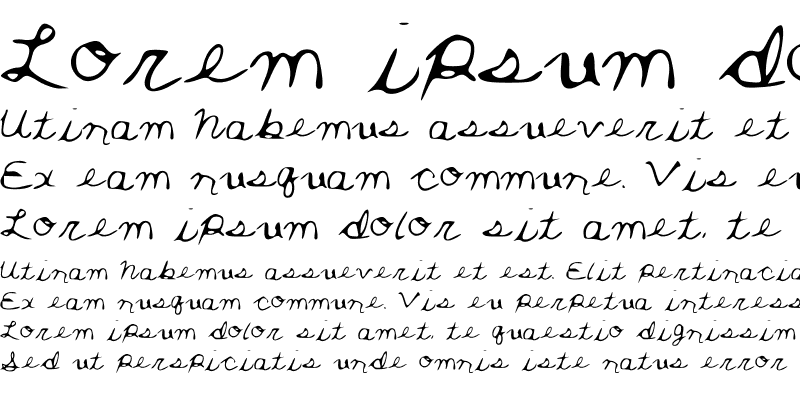 Lorem ipsum do
Utinam habemus assueverit et
Ex eam nusquam commune. Vis eu
Lorem ipsum dolor sit amet, te
Utinam habemus assueverit et est. Elit pertinacia
Ex eam nusquam commune. Vis eu perpetua interess
Lorem ipsum dolor sit amet, te quaestio dignissim
Sed ut perspiciatis unde omnis iste natus error